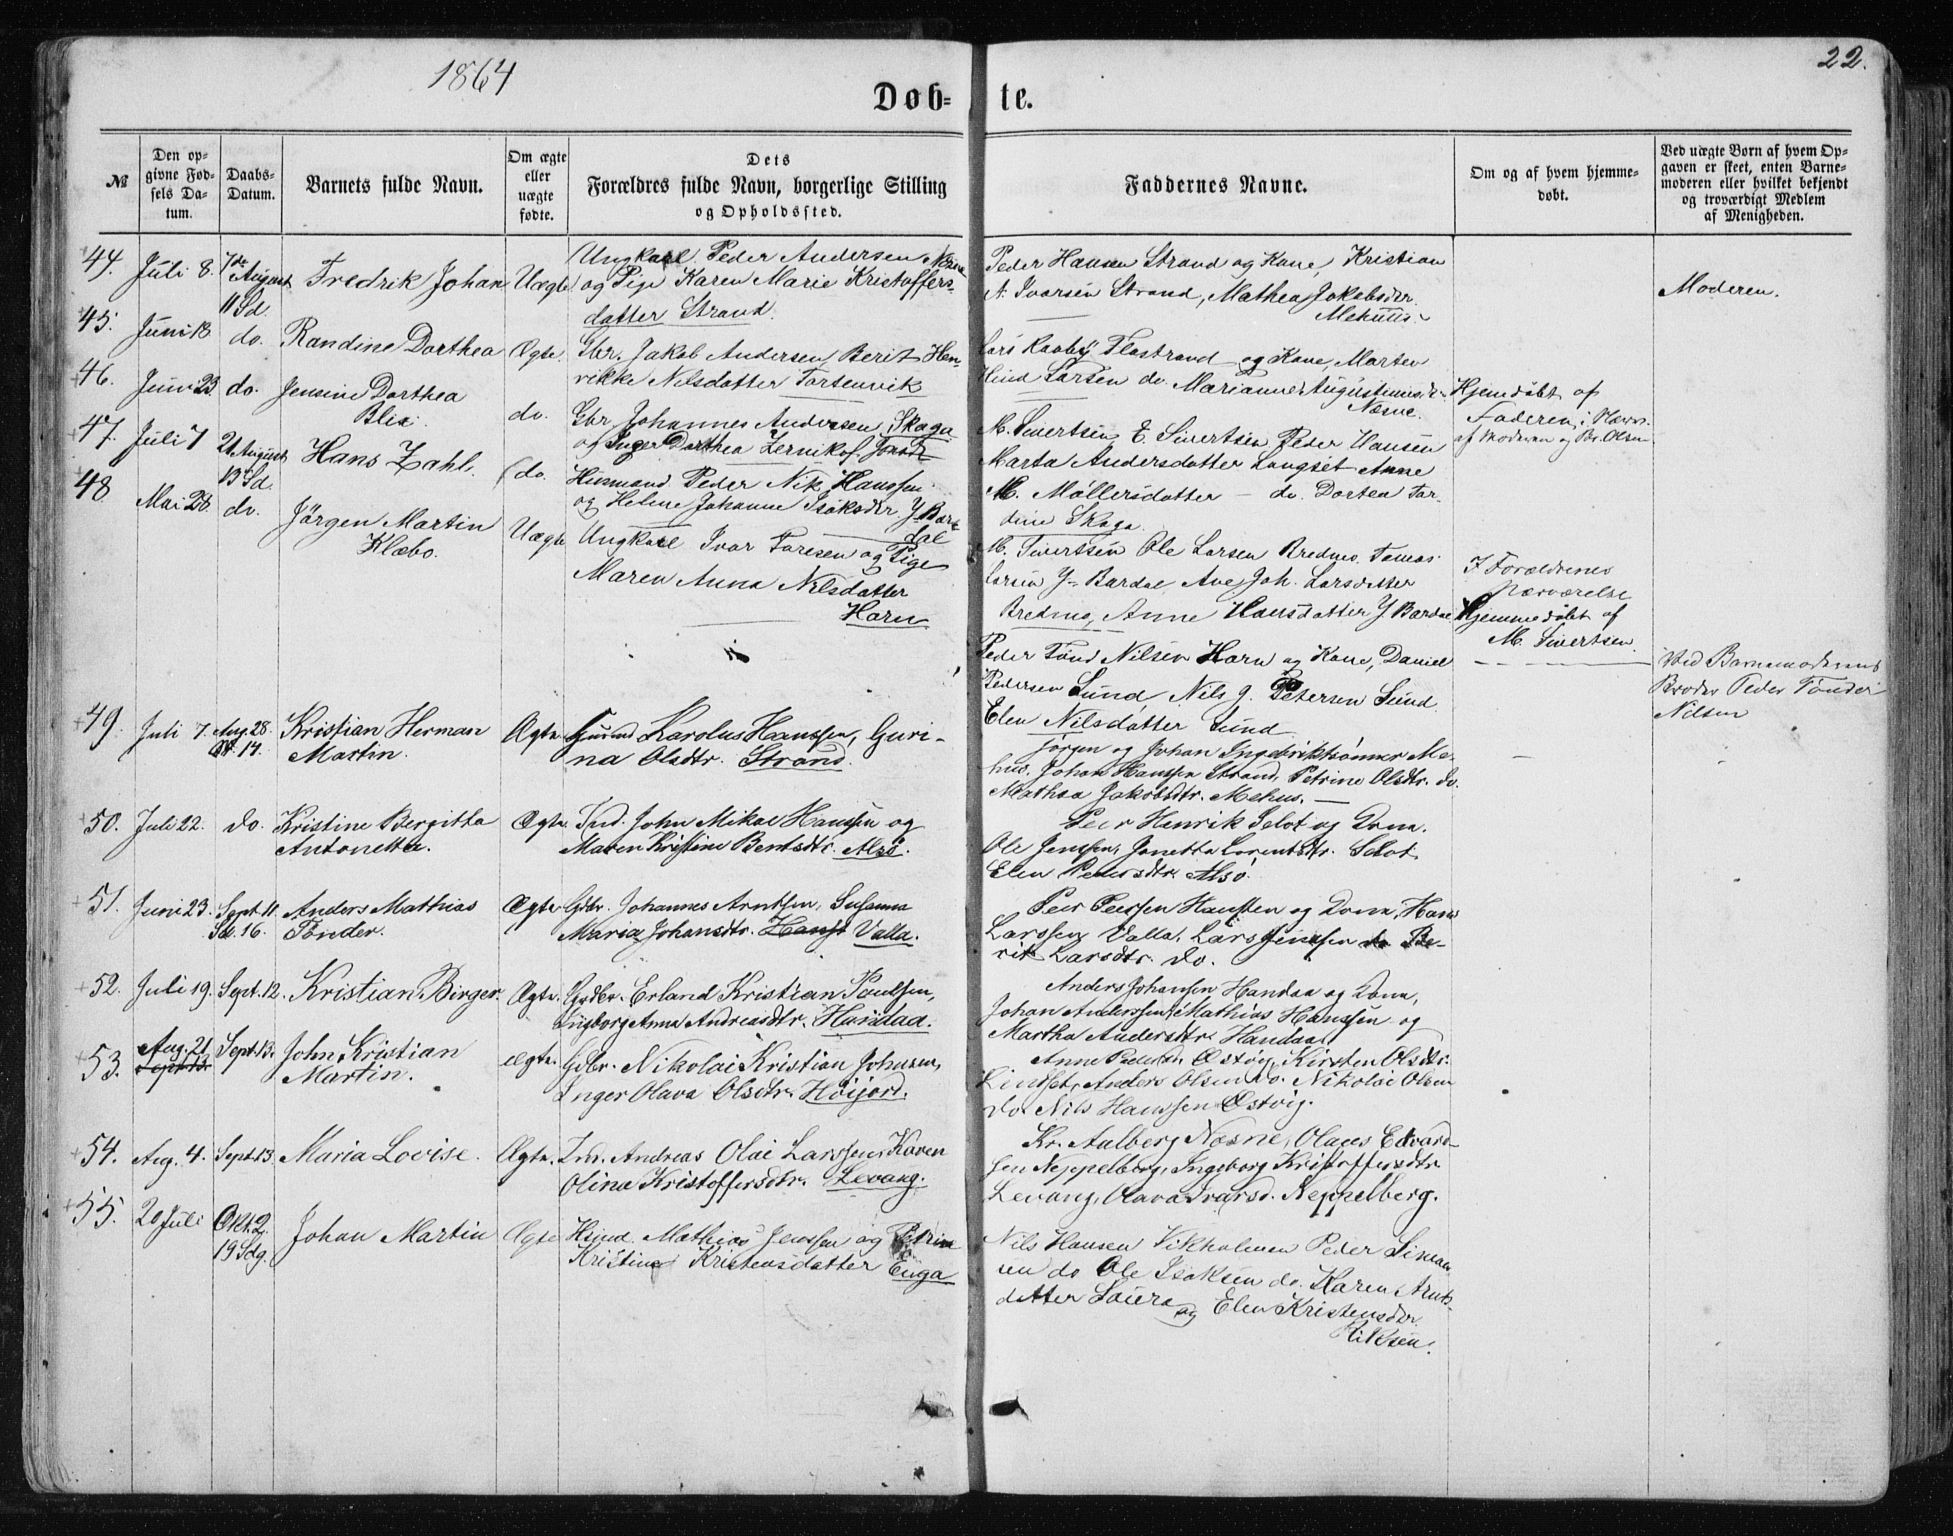 1864
22.
Döb=
te.
№
Den op=
givne Fød=
sels Da=
tum.
Daabs=
Datum.
Barnets fulde Navn.
Om ægte
eller
uægte
fødte.
Dets
Forældres fulde Navn, borgerlige Stilling
og Opholdssted.
Faddernes Navne.
Om og af hvem hjemme=
døbt.
Ved uægte Børn af hvem Op=
gaven er skeet, enten Barne=
moderen eller hvilket bekjendt
og troværdigt Medlem
af Menigheden.
44. Juli 8. 7de August 11 Sd. Fredrik Johan Uægte
Ungkarl Peder Andersen Næsne
og Pige Karen Marie Kristoffers-
datter Strand.
Peder Hansen Strand og Kone, Kristian
A. Ivarsen Strand, Mathea Jakobsdr.
Mehuus
Moderen.
45. Juni 18 do. Randine Dorthea Ægte.
Gbr. Jakob Andersen, Berit Hen-
rikke Nilsdatter Torsenvik
Lars Flostrand og Kone, Marten
Larsen do. Marianne Augustinusdr.
Næsne.
46. Juni 23 do. Jensine Dorthea
Blix. do.
Gbr. Johannes Andersen Skaga
og Inger Dorthea Zernikof. Jonsdr.
M. Sivertsen, E. Sivertsen Peder Hansen
Marta Andersdatter Langset Anne
M. Møllersdatter — do. Dortea Tor-
dine Skaga.
Hjemdøbt af
Faderen, i Nærv.
af Moderen og Br. Olsen
47. Juli 7 21 August 13 Sd. Hans Zahl. do.
Husmand Peder Nik Hanssen
og Helene Johanne Isaksdr. Y. Bar-
dal
M. Sivertsen Ole Larsen Bredmo Tomas
Larsen Y. Bardal Ane Joh. Larsdatter
Bredmo, Anne Hansdatter Y. Bardal
I Forældrenes
Nærværelse
Hjemmedøbt af
M. Sivertsen.
48 Mai 28. do. Jörgen Martin
Klæbo. Uægte
Ungkarl Ivar Toresen og Pige
Maren Anna Nilsdatter
Horn
Peder Tönd Nilsen Horn og Kone, Daniel
Pedersen Sund, Nils J. Petersen Sund
Elen Nilsdatter Sund.
Ved Barnemoderens
Broder Peder Tönder
Nilsen
49. Juli 7. Aug. 28. 14. Kristian Herman
Martin. Ægte.
Karolus Hanssen, Guri-
na Olsdtr. Strand.
Jörgen og Johan Ingebriktsønner Me-
hus. Johan Hanssen Strand, Petrine Olsdtr. do.
Mathea Jakobsdtr. Mehus.
50. Juli 22. do. Kristine Bergitta
Antonetta. Ægte.
Ind. John Mikal Hanssen og
Maren Kristine Bentsdtr. Alsö.
Peer Henrik Selot og Kona.
Ole Jenssen, Janetta Lorentsdtr. Selot
Elen Pedersdtr. Alsö.
51. Juni 23. Sept. 11. Sd. 16. Anders Mathias
Tönder. Ægte
Gdbr. Johannes Arntsen, Susanna
Maria Johansdtr. Valla.
Peer Peersen Haugten og Kona, Hans
Larssen Valla, Lars Jenssen do Be-
rit Larsdtr. do.
52. Juli 19. Sept. 12. Kristian Birger. Ægte.
Gdbr. Erland Kristian Paulssen,
Ingborg Anna Andreasdtr. Handaa.
Anders Johansen Handaa og Kona,
Johan Anderssen, Mathias Hanssen og
Martha Andersdtr. Handaa.
53. Aug. 21 Sept. 13. Sept. 13. John Kristian
Martin. Ægte.
Gdbr. Nikolai Kristian Johnsen,
Inger Olava Olsdtr. Höijord.
Anne Østvig, Kirsten Olsdtr.
Lindset, Anders Olsen do. Nikolai Olsen
do. Nils Hanssen Østvig.
54. Aug. 4. Sept. 13. Maria Lovise. Ægte.
Ind. Andreas Olai Larssen, Karen
Olina Kristoffersdtr. Levang.
Kr. Aalberg Næsne, Olaus Edvard-
sen Neppelberg, Ingeborg Kristoffersdtr
Levang, Olava Ivarsd. Neppelberg.
55. 20 Juli Okt. 2. 19 Sdg. Johan Martin Ægte
Hsmd. Mathias Jenssen og Petrine
Kristine Kristensdatter Enga
Nils Hansen Vikholmen Peder Simon-
sen do Ole Isaksen do. Karen Arnts-
datter Laura og Elen Kristensdtr.